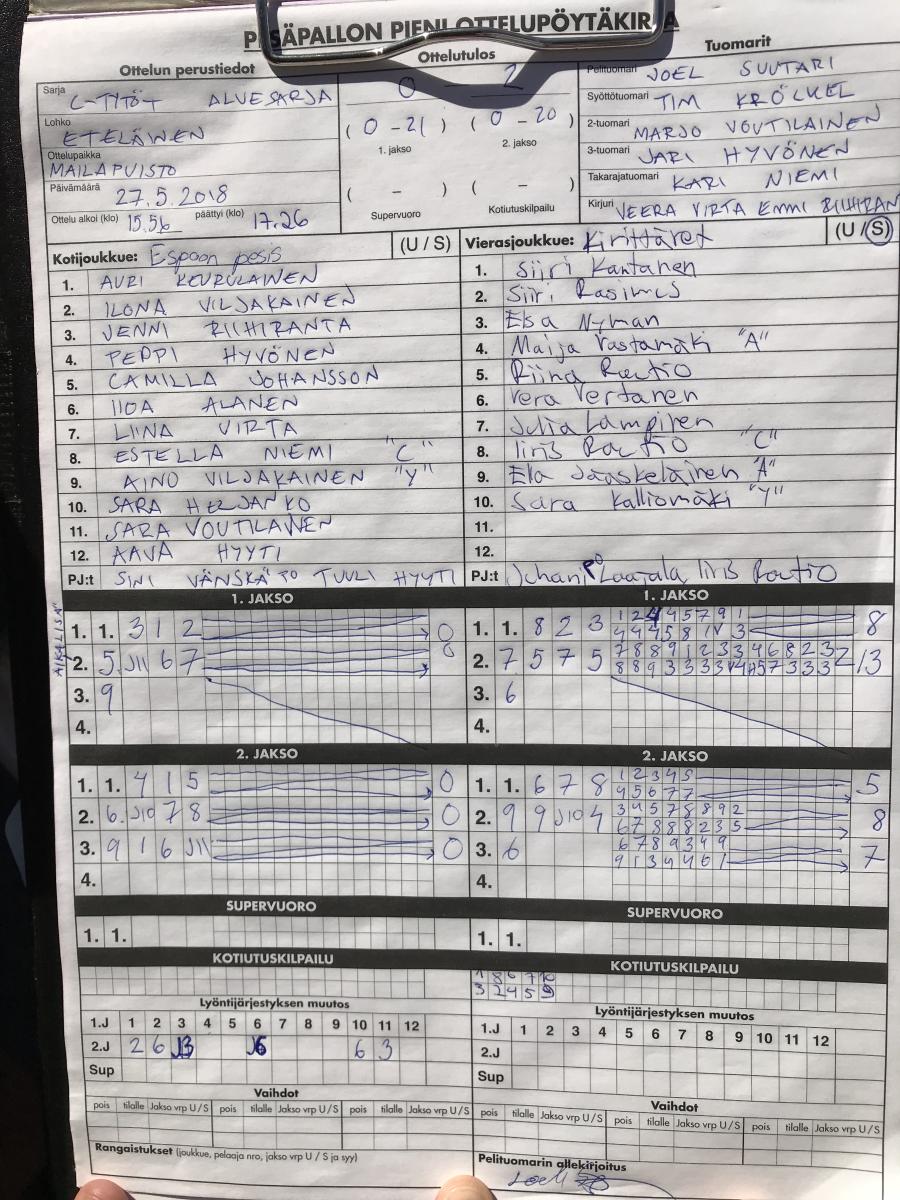 PESÄPALLON PIENI OTTELUPÖYTÄKIRJA
Ottelun perustiedot
Sarja C-TYTÖT ALUESARJA
Lohko ETELÄINEN
Ottelupaikka MAILAPUISTO
Päivämäärä 27.5.2018
Ottelu alkoi (klo) 15.56 päättyi (klo) 17.26
Ottelutulos
0 - 2
(0 - 21) (0 - 20)
1. jakso 2. jakso
( - ) ( - )
Supervuoro Kotiutuskilpailu
Tuomarit
Pelituomari JOEL SUUTARI
Syöttötuomari TIM KRÖCKEL
2-tuomari MARJO VOUTILAINEN
3-tuomari JARI HYVÖNEN
Takarajatuomari KARI NIEMI
Kirjuri VEERA VIRTA EMMI
Kotijoukkue: Espoon pesis (U / S)
1. AURI KEURULAINEN
2. ILONA VILJAKAINEN
3. JENNI RIIHIRANTA
4. PEPPI HYVÖNEN
5. CAMILLA JOHANSSON
6. IIDA ALANEN
7. LIINA VIRTA
8. ESTELLA NIEMI "C"
9. AINO VILJAKAINEN "Y"
10. SARA HELJANKO
11. SARA VOUTILAINEN
12. AAVA HYYTI
PJ:t SINI VÄNSKÄ TUULI HYYTI
Vierasjoukkue: Kirittäret (U / S)
1. Siiri Kantanen
2. Siiri Rasimus
3. Elsa Nyman
4. Maija Vastamäki "A"
5. Riina Rautio
6. Vera Vertanen
7. Julia Lampinen
8. Iiris Rautio "C"
9. Ella Jääskeläinen "A"
10. Sara Kalliomäki "Y"
11.
12.
PJ:t Juhani Laajala, Iiris Rautio
1. JAKSO
1. 1. 3 1 2 0
2. 5 J11 6 7 0
3. 9
4.
1. JAKSO
1. 1. 8 2 3 8
2. 7 5 7 5 13
3. 6
4.
2. JAKSO
1. 1. 4 1 5 0
2. 6. J10 7 8 0
3. 9 1 6 J11 0
4.
2. JAKSO
1. 1. 6 7 8 1 2 3 4 5 5
4 5 6 7 7
2. 9 9 J10 4 3 4 5 7 8 8 9 2 8
6 7 8 8 8 2 3 5
3. 6 6 7 8 9 3 4 9 7
9 1 3 4 4 6 1
4.
SUPERVUORO
1. 1.
SUPERVUORO
1. 1.
KOTIUTUSKILPAILU
KOTIUTUSKILPAILU
1 8 6 7 10
3 2 4 5 9
Lyöntijärjestyksen muutos
1.J 1 2 3 4 5 6 7 8 9 10 11 12
2.J 2 6 J3 J6 6 3
Sup
Lyöntijärjestyksen muutos
1.J 1 2 3 4 5 6 7 8 9 10 11 12
2.J
Sup
Vaihdot
pois tilalle Jakso vrp U / S pois tilalle Jakso vrp U / S pois tilalle Jakso vrp U / S
Vaihdot
pois tilalle Jakso vrp U / S pois tilalle Jakso vrp U / S pois tilalle Jakso vrp U / S
Rangaistukset (joukkue, pelaaja nro, jakso vrp U / S ja syy)
Pelituomarin allekirjoitus